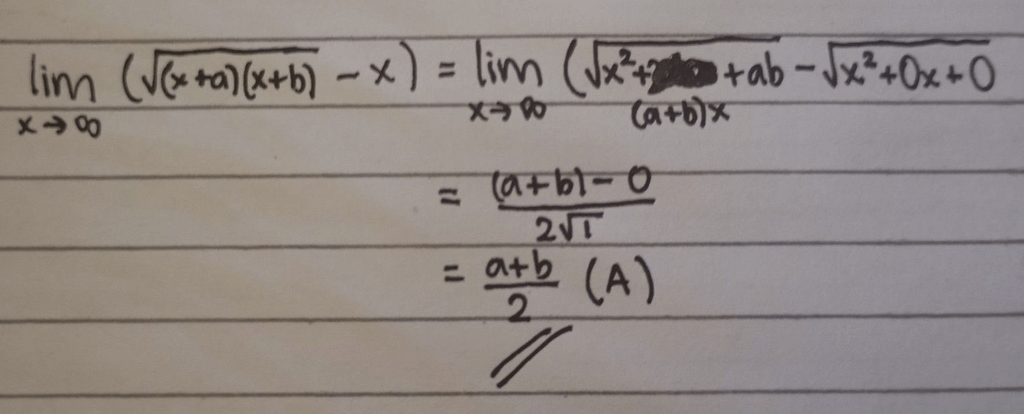 lim (√(x+a)(x+b) - x) = lim (√x²+ +ab - √x²+0x+0
x→∞ x→∞ (a+b)x
= (a+b) - 0
2√1
= a+b (A)
2